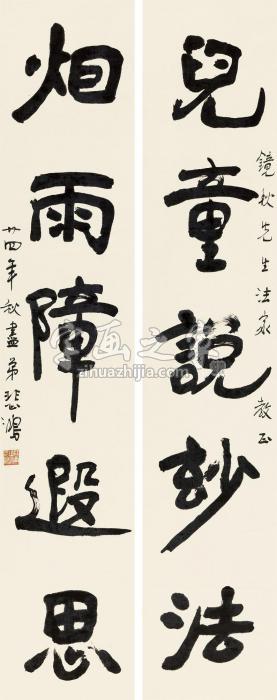 兒童說妙法
鏡秋先生法家 教正
烟雨障遐思
廿四年秋盡弟悲鴻
字画之家
zihuazhijia.com